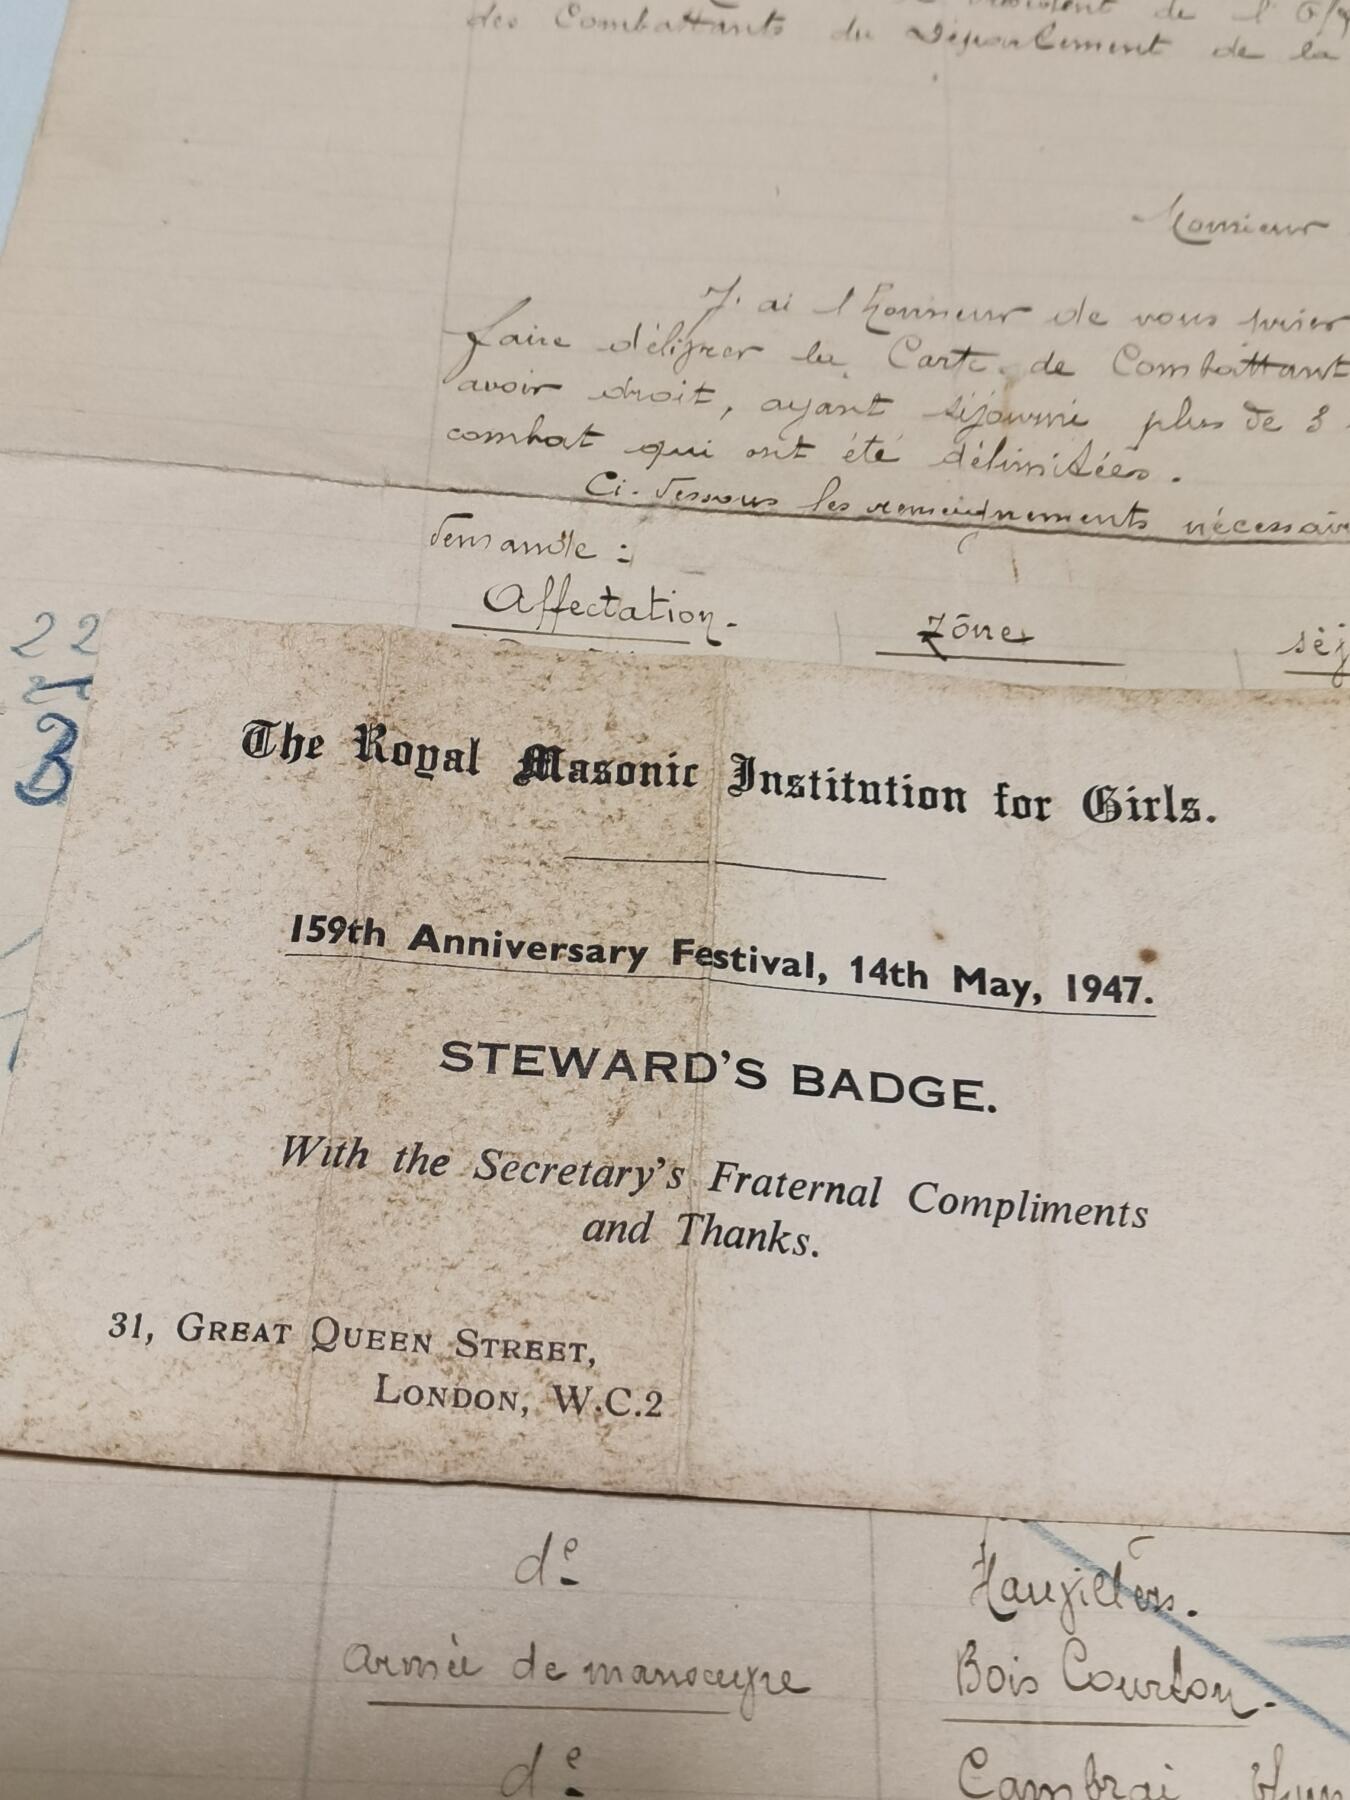 de l'Off
des Combattants du Département de la
Monsieur
J'ai l'honneur de vous prier
faire délivrer la Carte de Combattant
avoir droit, ayant séjourné plus de 3
combat qui ont été délimitées.
Ci-dessous les renseignements nécessair
demande :
Affectation. zône séj
22
B
The Royal Masonic Institution for Girls.
159th Anniversary Festival, 14th May, 1947.
STEWARD'S BADGE.
With the Secretary's Fraternal Compliments
and Thanks.
31, GREAT QUEEN STREET,
LONDON, W.C.2
de
armée de manoeuvre Bois Courton.
de Cambrai